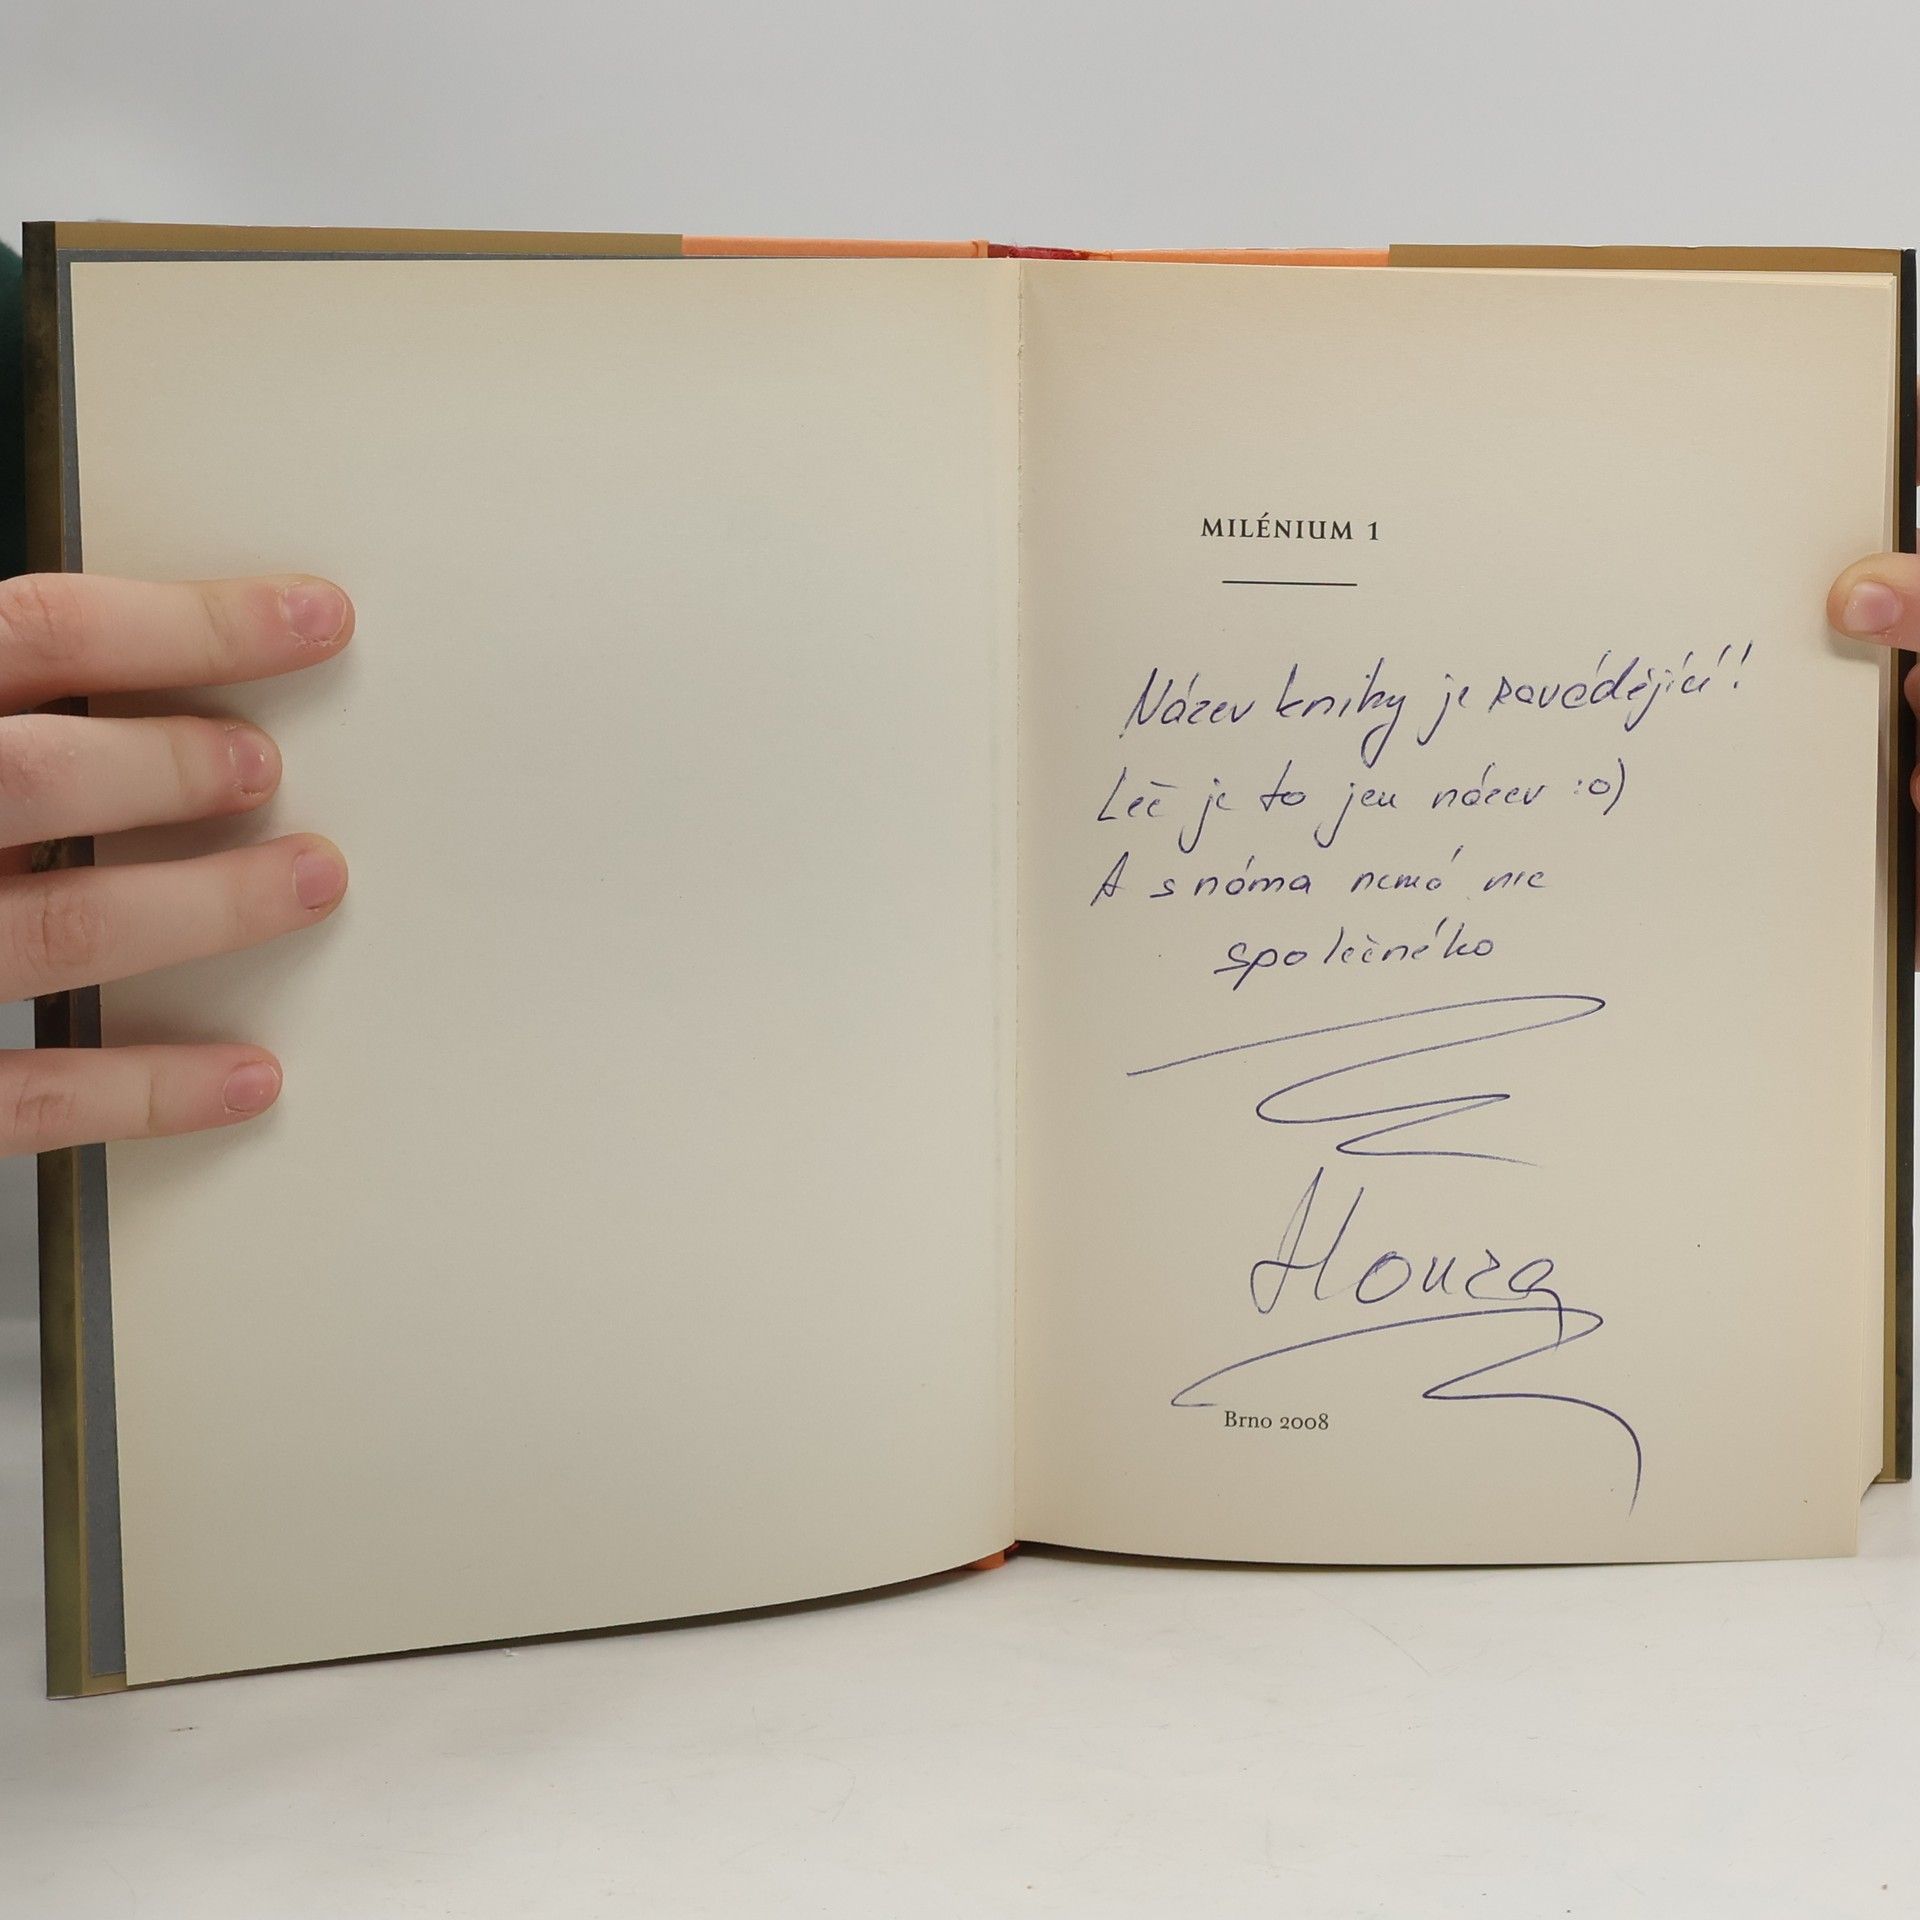 MILÉNIUM 1
Název knihy je zavádějící!
Leč je to jen název :o)
A s náma nemá nic
společného
Honza
Brno 2008